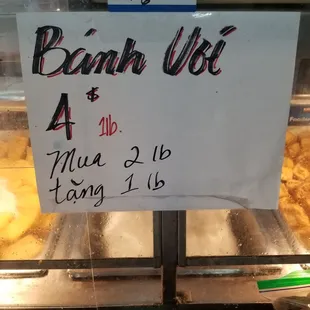 Bánh Vói
4$ 1lb.
Mua 2 lb
tặng 1 lb